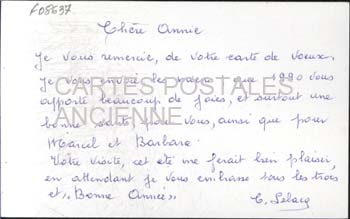 F08637
Chère Annie
Je vous remercie, de votre carte de voeux.
Je vous envoie les miens que 1990 vous
apporte beaucoup de joies, et surtout une
bonne santé pour vous, ainsi que pour
Marcel et Barbara.
Votre visite, cet été me ferait bien plaisir,
en attendant je vous embrasse tous les trois
et "Bonne Année"
CARTES POSTALES
ANCIENNE